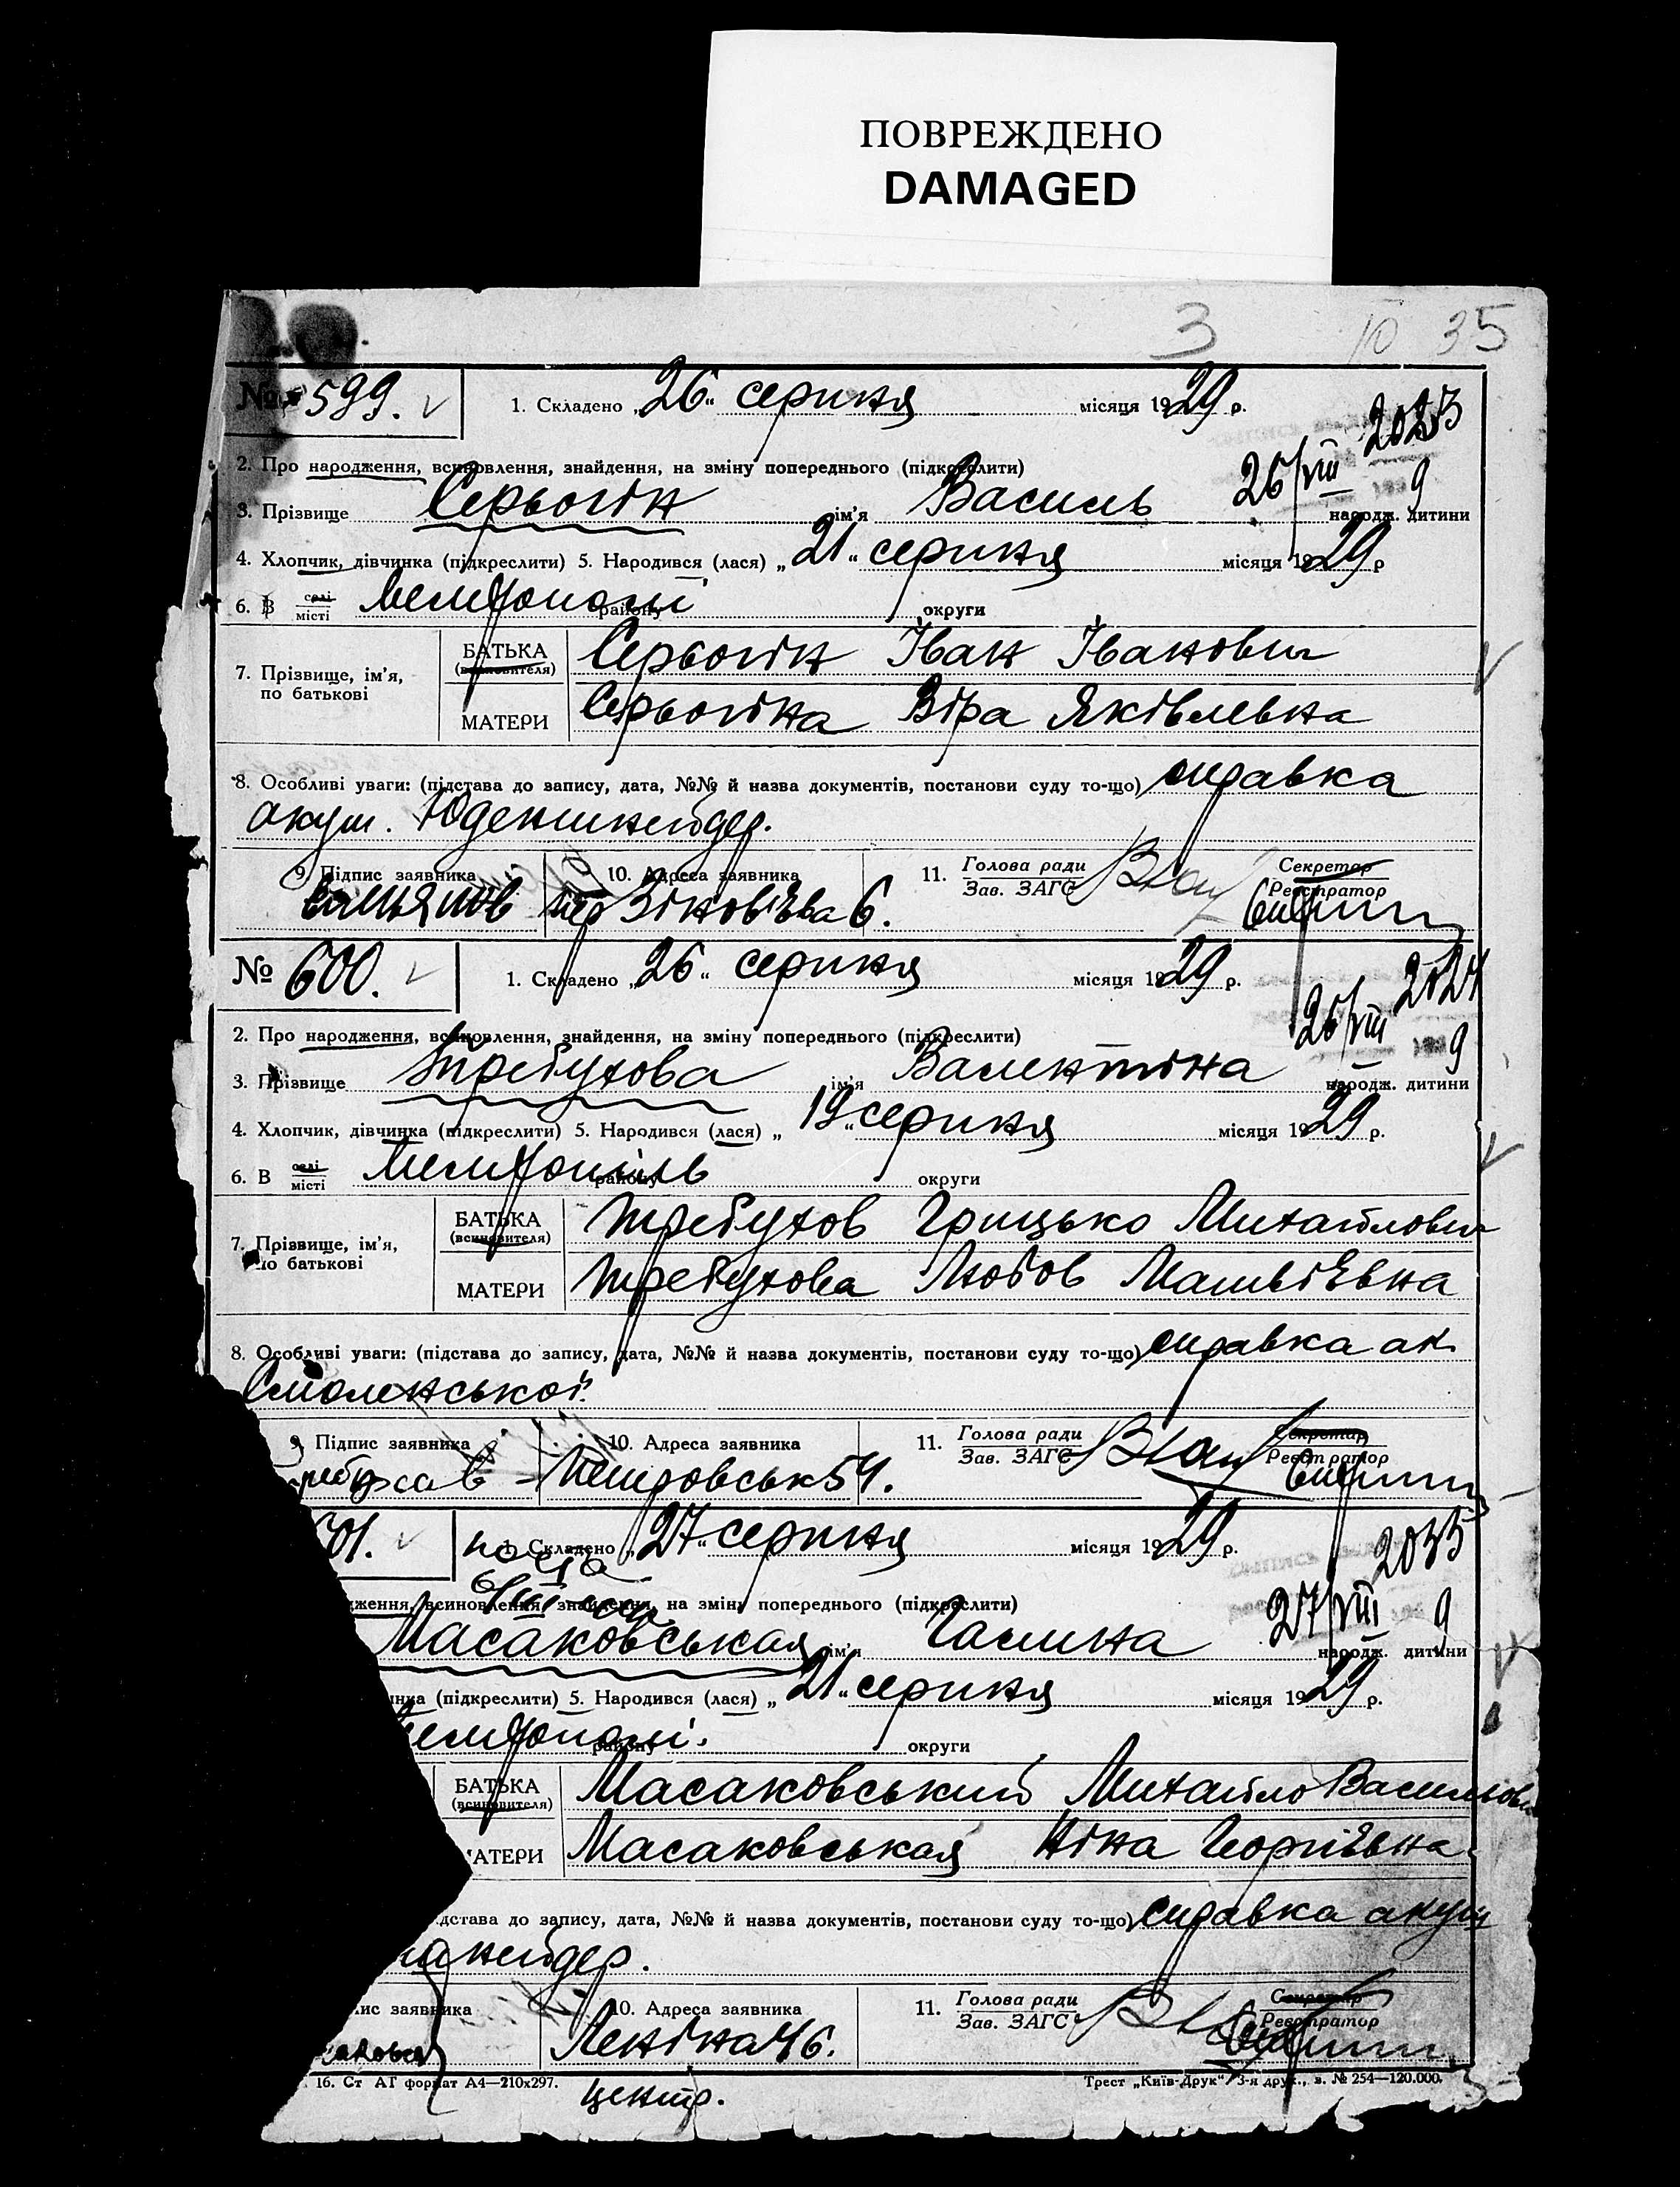 ПОВРЕЖДЕНО
DAMAGED
3 10 35
№ 599. 1. Складено „26“ серпня місяця 1929 р.
2. Про народження, всиновлення, знайдення, на зміну попереднього (підкреслити)
26/VIII 9
3. Прізвище Серьогін ім'я Василь народж. дитини
4. Хлопчик, дівчинка (підкреслити) 5. Народився (лася) „21“ серпня місяця 1929 р
6. В селі місті Мелітополі району округи
7. Прізвище, ім'я, по батькові
БАТЬКА (всиновителя) Серьогін Іван Іванович
МАТЕРИ Серьогіна Віра Яківлевна
8. Особливі уваги: (підстава до запису, дата, №№ й назва документів, постанови суду то-що) справка
акуш.
9. Підпис заявника 10. Адреса заявника 11. Голова ради Зав. ЗАГС Секретар Реєстратор
Зіновієва 6.
№ 600. 1. Складено „26“ серпня місяця 1929 р.
2024
2. Про народження, всиновлення, знайдення, на зміну попереднього (підкреслити)
26/VIII 9
3. Прізвище Требухова ім'я Валентіна народж. дитини
4. Хлопчик, дівчинка (підкреслити) 5. Народився (лася) „19“ серпня місяця 1929 р.
6. В селі місті Мелітопіль району округи
7. Прізвище, ім'я, по батькові
БАТЬКА (всиновителя) Требухов Грицько Михайлович
МАТЕРИ Требухова Любов Матвієвна
8. Особливі уваги: (підстава до запису, дата, №№ й назва документів, постанови суду то-що) справка ак
Смоленської
9. Підпис заявника 10. Адреса заявника 11. Голова ради Зав. ЗАГС Секретар Реєстратор
Петровськ 54.
601. 1. Складено „27“ серпня місяця 1929 р.
дження, всиновлення, знайдення, на зміну попереднього (підкреслити)
27/VIII 9
Масаковськая ім'я Галина народж. дитини
инка (підкреслити) 5. Народився (лася) „21“ серпня місяця 1929 р.
Мелітополі. району округи
БАТЬКА (всиновителя) Масаковський Михайло Васильович
МАТЕРИ Масаковськая Ніна Георгієвна
ідстава до запису, дата, №№ й назва документів, постанови суду то-що) справка акуш
нейдер.
ис заявника 10. Адреса заявника 11. Голова ради Зав. ЗАГС Секретар Реєстратор
Леніна 46.
16. Ст АГ формат А4—210х297. Трест „Київ-Друк“ 3-я друк., з. № 254—120.000.
центр.